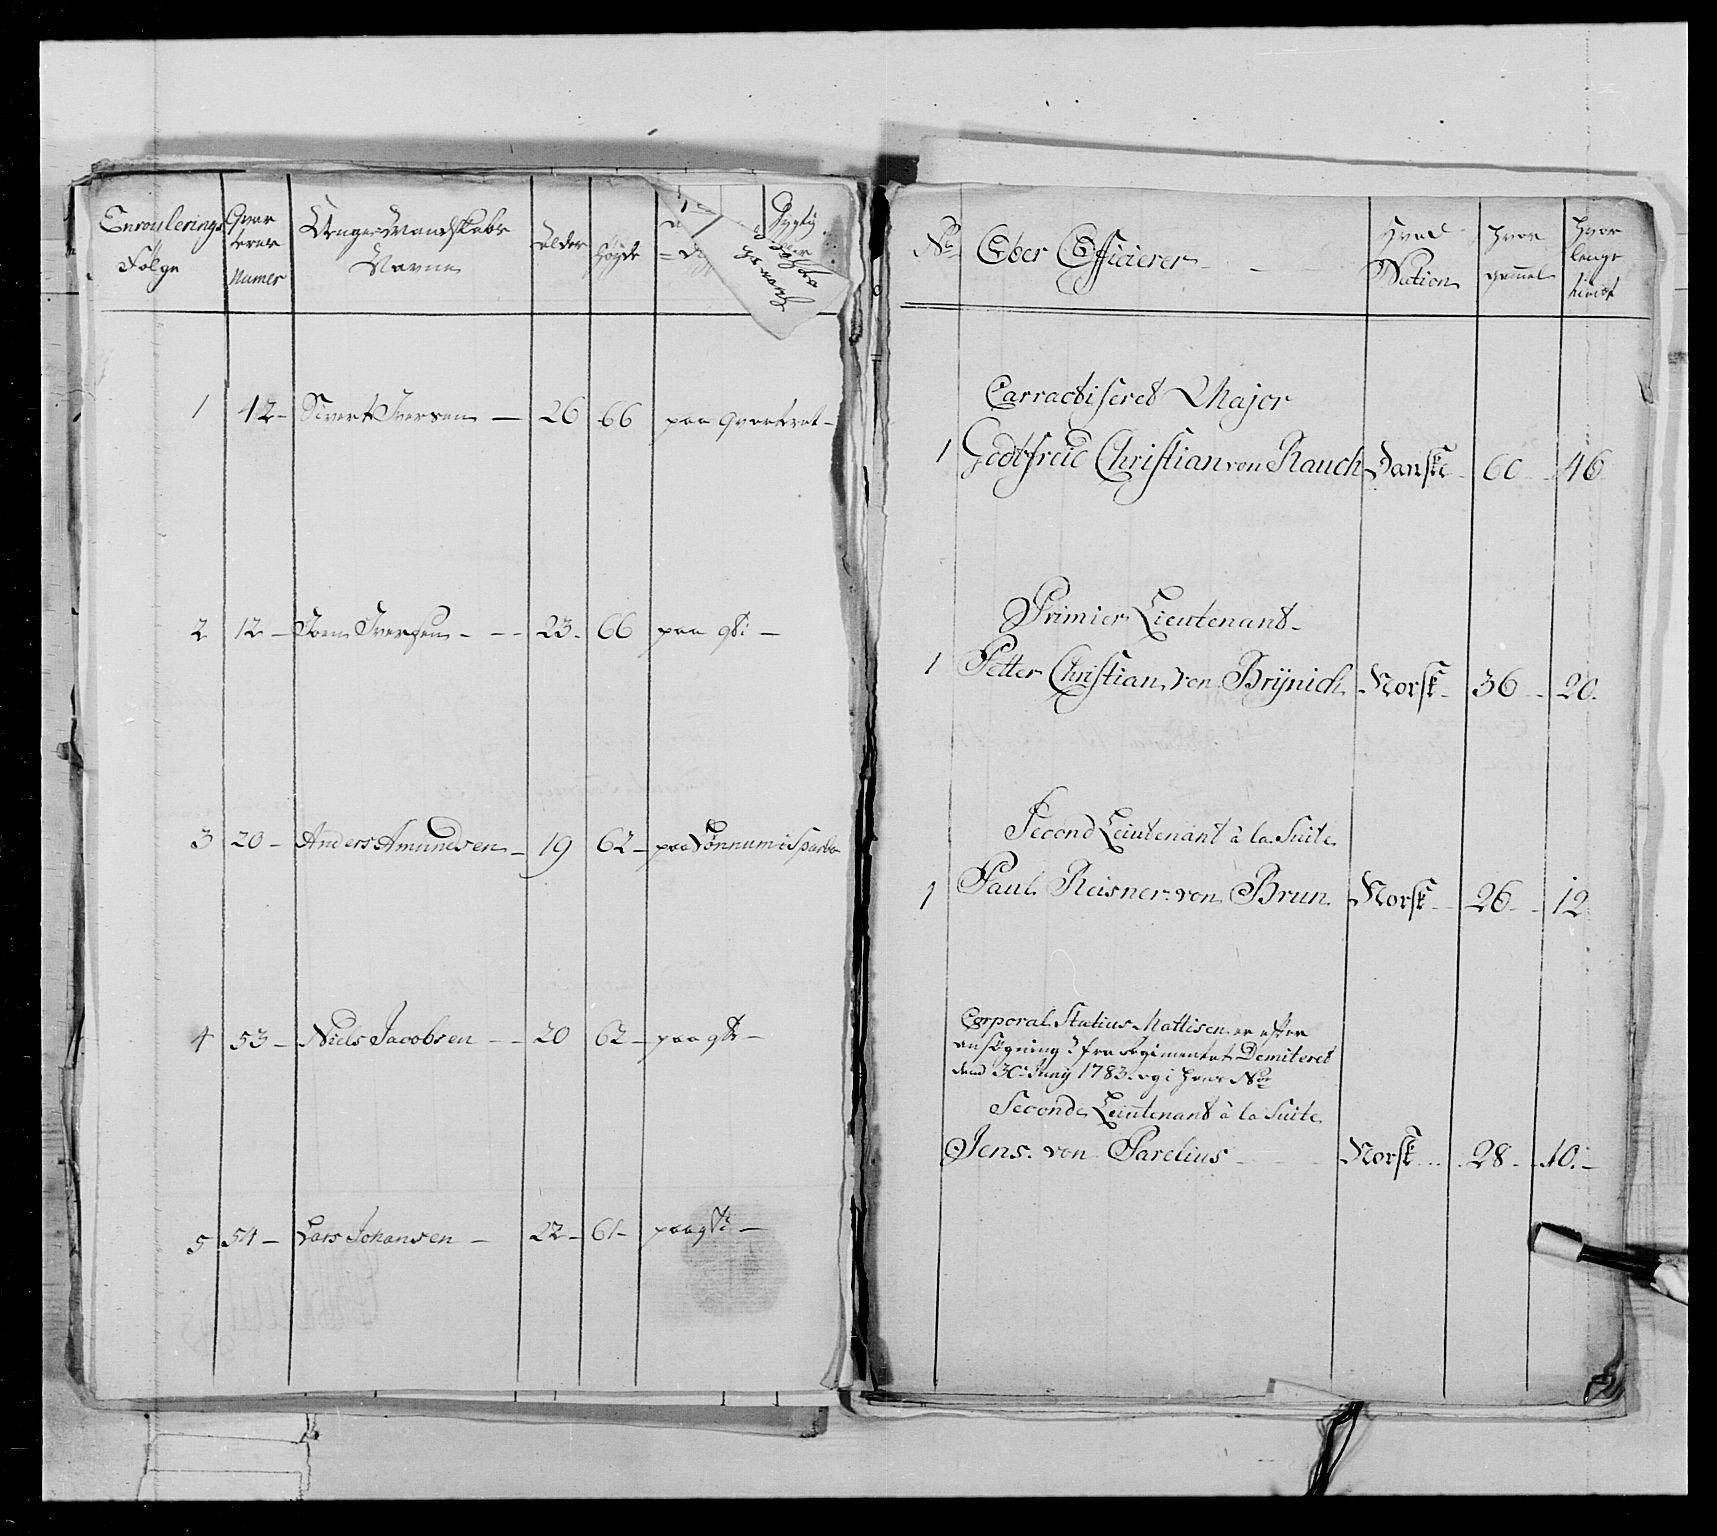 Enroulerings Følge | Qvarterer Numer | Unge Mandskabs Navne | Alder | Høyde
1 | 42 - | Sivert Iversen — | 26 | 66 | paa Qvarteret -
2 | 12 - | Joen Iversen - - - | 23 - | 66 | paa qti -
3 | 20 - | Anders Amundsen - | 19 | 62 - | paa Lønnum i Sparbo
4 | 53 - | Niels Jacobsen - - | 20 | 62 - | paa qti -
5 | 54 - | Lars Johansen - | 22 - | 61 - | paa qti -
No | Ober Officierer | Hvad Nation | Hvor gammel | Hvor lenge tient
Carractiseret Major
1 | Godtfreid Christian von Rauch | Danske | 60 | 46
Primier Lieutenant
1 | Petter Christian von Brÿnich | Norsk | 36 | 20
Second Leiutenant à la Suite
1 | Paul Reisner von Brun | Norsk | 26 | 12
Corporal Statius Mattisen er efter
ansøgning i fra Regimentet Demiteret
den 30 Junÿ 1783 og i hans Nor
Seconde Leiutenant à la Suite
Jens von Parelius | Norsk | 28 | 10